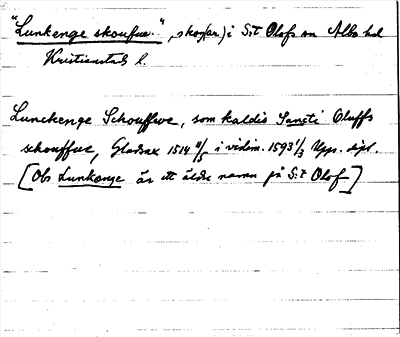 "Lunkenge skoufwe", skog(ar) i S:t Olofs sn Albo hd
Kristianstads l.
Lunckenge Schouffwe, som kaldis Sancti Oluffs
schouffue, Gladsax 1514 11/5 i vidim. 1593 1/3 Upps. dipl.
[Obs Lunkange är ett äldre namn på S:t Olof]